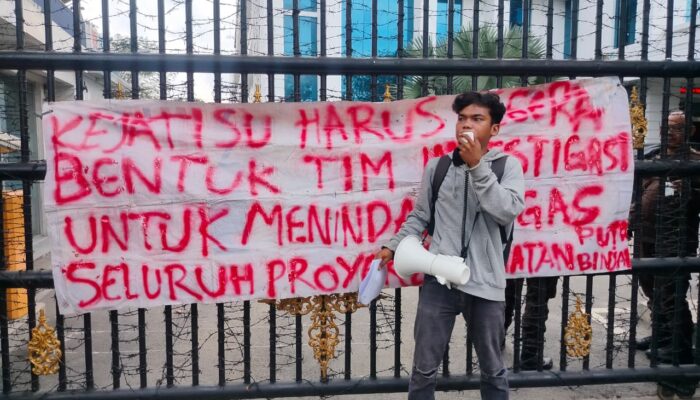 KEJATISU HARUS SEGERA
BENTUK TIM INVESTIGASI
UNTUK MENINDAK TEGAS PUTR
SELURUH PROYEK ATAN BINJAI